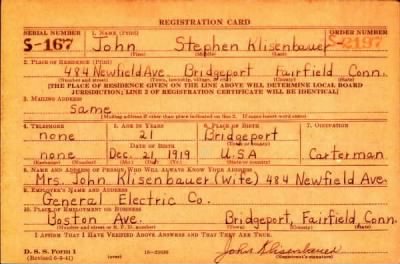 REGISTRATION CARD
SERIAL NUMBER 1. NAME (Print) ORDER NUMBER
S-167 John Stephen Klisenbauer S-2197
(First) (Middle) (Last)
2. PLACE OF RESIDENCE (Print)
484 Newfield Ave. Bridgeport Fairfield Conn.
(Number and street) (Town, township, village, or city) (County) (State)
[THE PLACE OF RESIDENCE GIVEN ON THE LINE ABOVE WILL DETERMINE LOCAL BOARD
JURISDICTION; LINE 2 OF REGISTRATION CERTIFICATE WILL BE IDENTICAL]
3. MAILING ADDRESS
Same
[Mailing address if other than place indicated on line 2. If same insert word same]
4. TELEPHONE 5. AGE IN YEARS 6. PLACE OF BIRTH 7. OCCUPATION
none 21 Bridgeport
DATE OF BIRTH (Town or county)
none Dec. 21 1919 U.S.A Carterman
(Exchange) (Number) (Mo.) (Day) (Yr.) (State or country)
8. NAME AND ADDRESS OF PERSON WHO WILL ALWAYS KNOW YOUR ADDRESS
Mrs. John Klisenbauer (Wife) 484 Newfield Ave.
9. EMPLOYER'S NAME AND ADDRESS
General Electric Co.
10. PLACE OF EMPLOYMENT OR BUSINESS
Boston Ave. Bridgeport, Fairfield, Conn.
(Number and street or R. F. D. number) (Town) (County) (State)
I AFFIRM THAT I HAVE VERIFIED ABOVE ANSWERS AND THAT THEY ARE TRUE.
D. S. S. Form 1 John S Klisenbauer
(Revised 6-9-41) (over) (Registrant's signature)